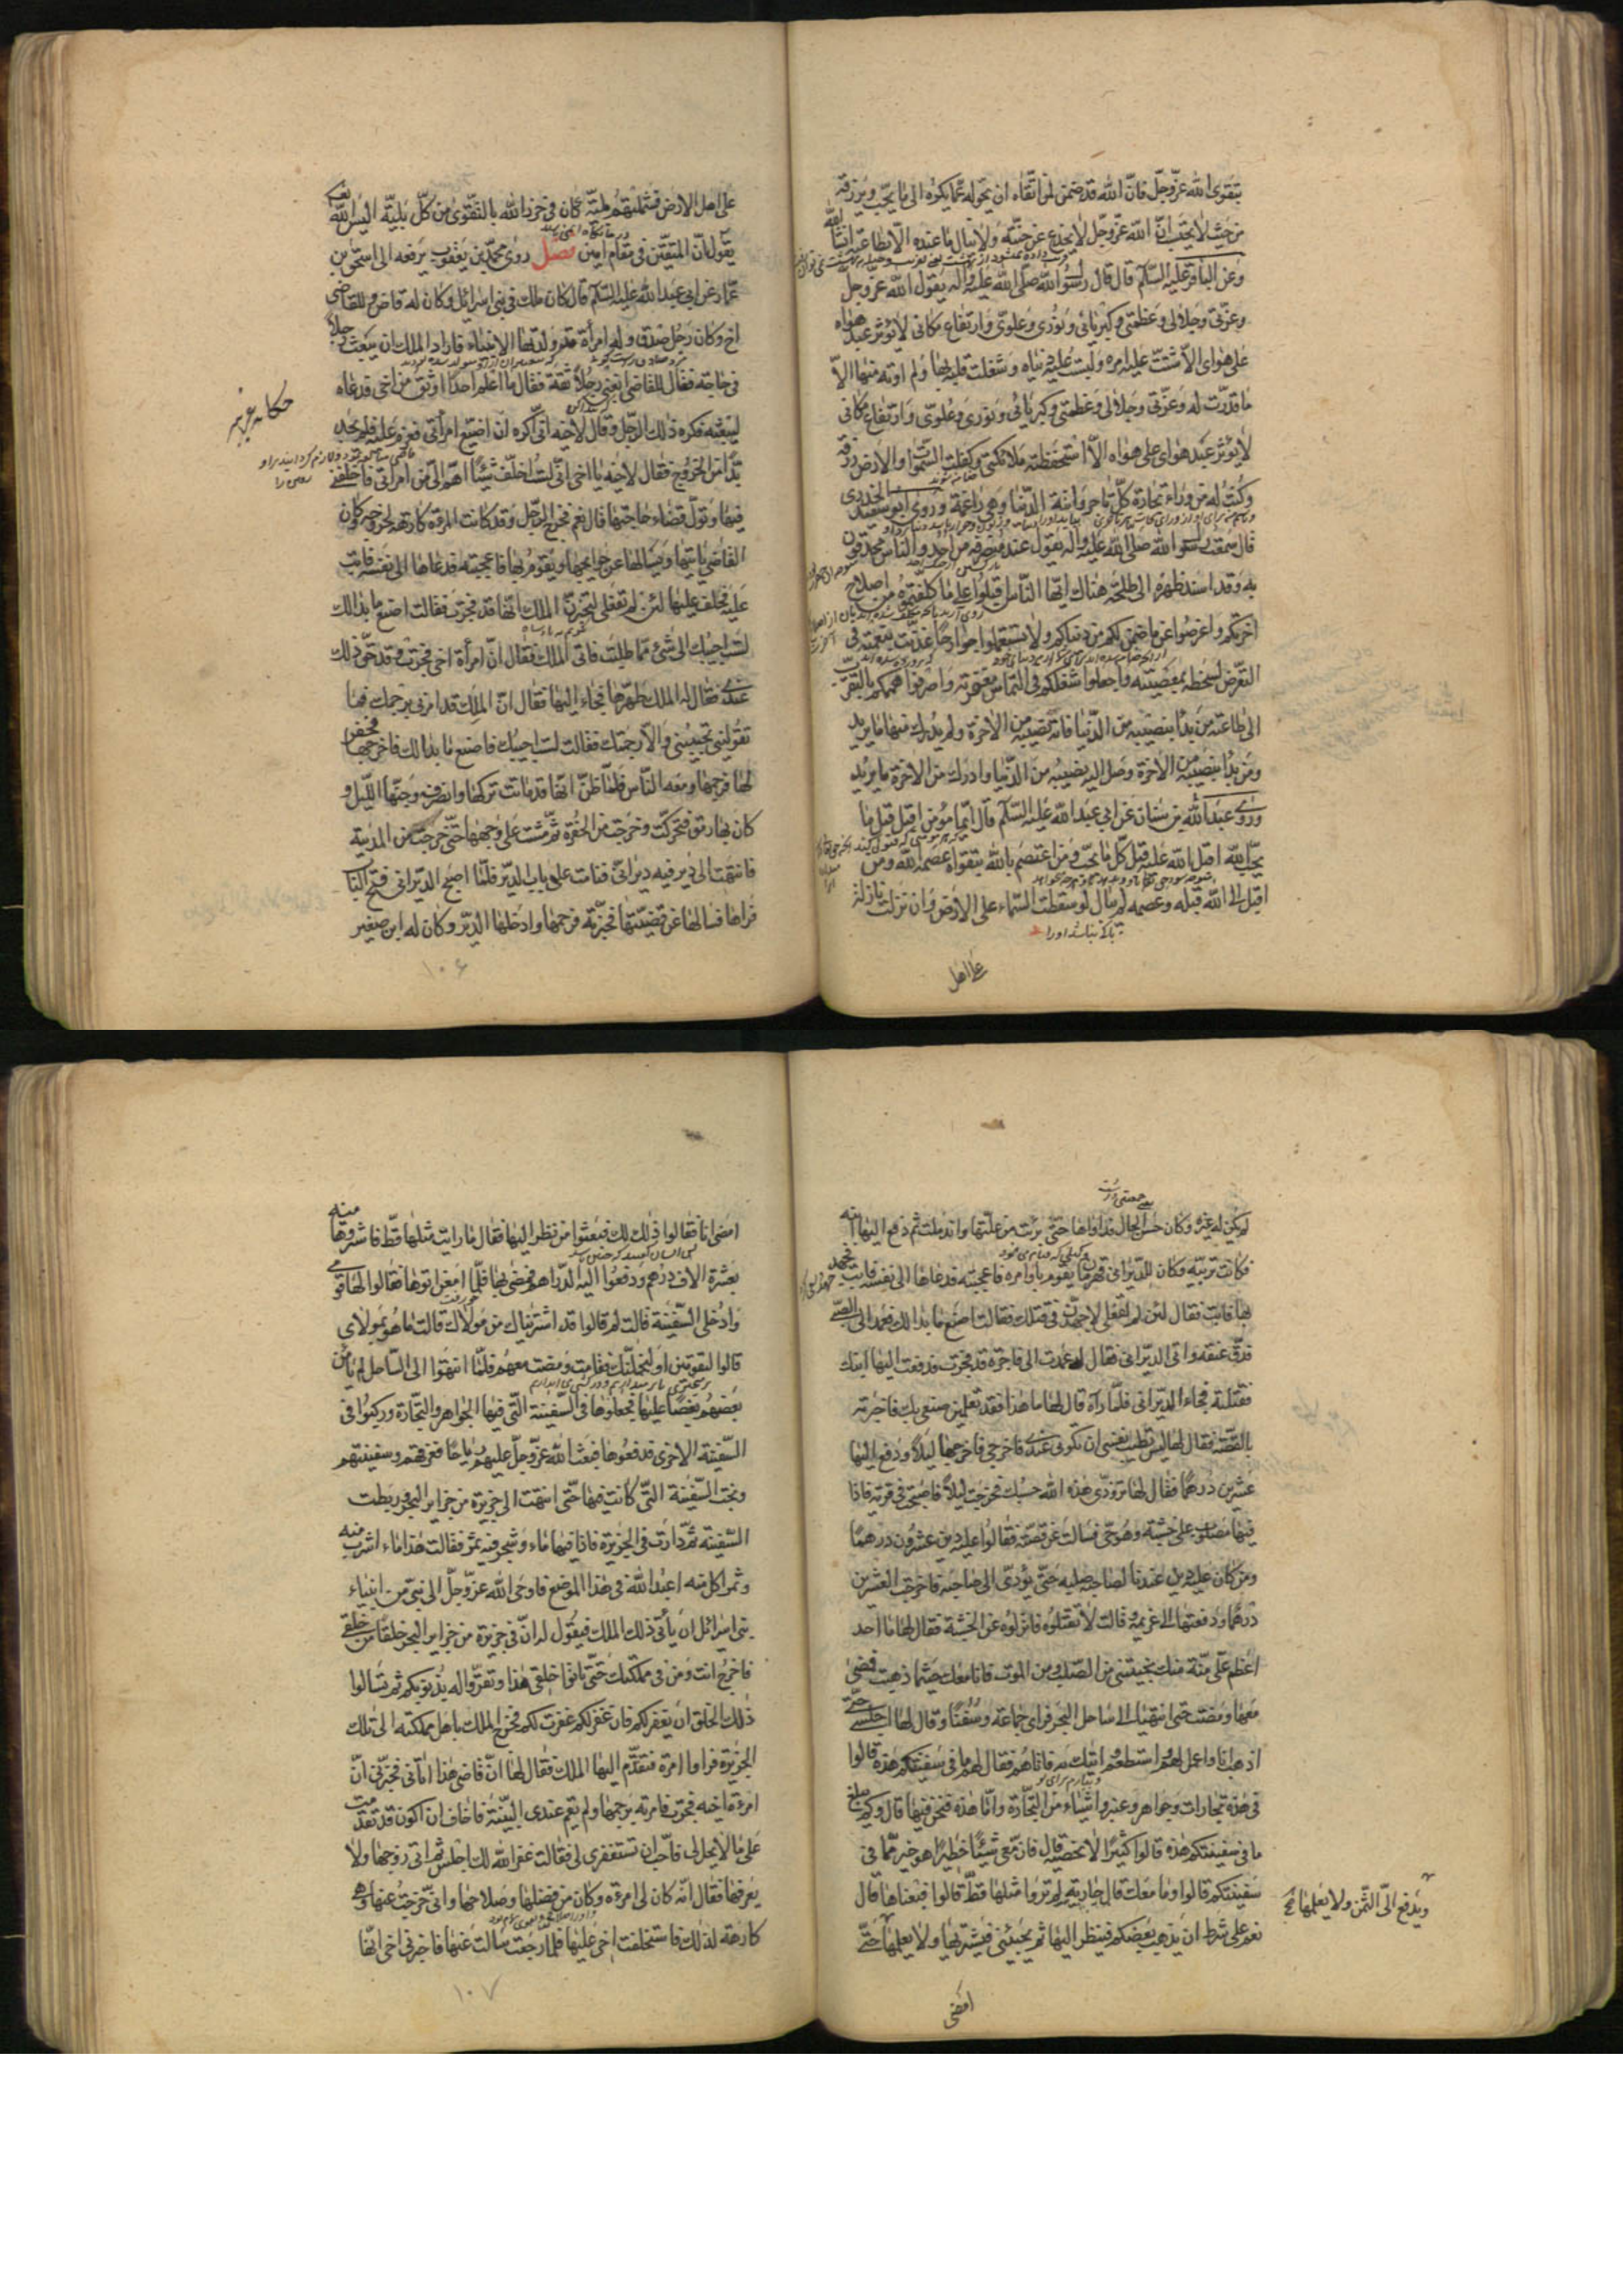 بتقوى الله عزّ وجلّ فانّ الله قد ضمن لمن اتّقاه ان يحوّله عمّا يكره الى ما يحبّ ويرزقه
من حيث لا يحتسب انّ الله عزّ وجلّ لا يخدع عن جنّته ولا ينال ما عنده الّا بطاعته انشاء الله
وعن الباقر عليه السّلام قال قال رسول الله صلّى الله عليه وآله يقول الله عزّ وجلّ
وعزّتى وجلالى وعظمتى وكبريائى ونورى وعلوّى وارتفاع مكانى لا يؤثر عبد هواه
على هواى الّا شتّتّ عليه امره ولبّست عليه دنياه وشغلت قلبه بها ولم اوته منها الّا
ما قدّرت له وعزّتى وجلالى وعظمتى وكبريائى ونورى وعلوّى وارتفاع مكانى
لا يؤثر عبد هواى على هواه الّا استحفظته ملائكتى وكفّلت السّموات والارض رزقه
وكنت له من وراء تجارة كلّ تاجر واتته الدّنيا وهى راغمة وروى ابو سعيد الخدرى
قال سمعت رسول الله صلّى الله عليه وآله يقول عند منصرفه من احد والنّاس محدقون
به وقد اسند ظهره الى طلحة هناك ايّها النّاس اقبلوا على ما كلّفتموه من اصلاح
اخرتكم واعرضوا عمّا ضمن لكم من دنياكم ولا تستعملوا جوارحا غذّيت بنعمته فى
التّعرّض لسخطه بمعصيته واجعلوا شغلكم فى التماس مغفرته واصرفوا هممكم بالتّقرّب
الى طاعته من بدأ بنصيبه من الدّنيا فاته نصيبه من الاخرة ولم يدرك منها ما يريد
ومن بدأ بنصيبه من الاخرة وصل اليه نصيبه من الدّنيا وادرك من الاخرة ما يريد
وروى عبد الله بن سنان عن ابى عبد الله عليه السّلام قال ايّما مؤمن اقبل قبل ما
يحبّ الله اقبل الله عليه قبل كلّ ما يحبّ ومن اعتصم بالله بتقواه عصمه الله ومن
اقبل الى الله قبله وعصمه لم يبال لو سقطت السّماء على الارض وان نزلت نازلة
على اهل
على اهل الارض فشملتهم بليّة كان فى حرز الله بالتّقوى من كلّ بليّة اليس الله تعالى
يقول انّ المتّقين فى مقام امين فصل روى محمّد بن يعقوب يرفعه الى اسحق بن
عمّار عن ابى عبد الله عليه السّلام قال كان ملك فى بنى اسرائيل وكان له قاض وللقاضى
اخ وكان رجل صدق وله امرأة قد ولدتها الانبياء فاراد الملك ان يبعث رجلاً
فى حاجة فقال للقاضى ابغنى رجلاً ثقة فقال ما اعلم احدا اوثق من اخى فدعاه
ليبعثه فكره ذلك الرّجل وقال لاخيه انّى اكره ان اضيّع امرأتى فعزم عليه فلم يجد
حكايه غريبه
بدّا من الخروج فقال لاخيه يا اخى انّى لست اخلّف شيئا اهمّ الىّ من امرأتى فاخلفنى
فيها وتولّ قضاء حاجتها قال نعم فخرج الرّجل وقد كانت المرأة كارهة لخروجه وكان
القاضى يأتيها ويسألها عن حوايجها ويقوم بها فاعجبته فدعاها الى نفسه فابت
عليه فحلف عليها لئن لم تفعلى ليخبرنّ الملك انّها قد فجرت فقالت اصنع ما بدالك
لست اجيبك الى شئ ممّا طلبت فاتى الملك فقال انّ امرأة اخى فجرت وقد حقّ ذلك
عندى فقال له الملك طهّرها فجاء اليها فقال انّ الملك قد امرنى برجمك فما
تقولين تجيبينى والّا رجمتك فقالت لست اجيبك فاصنع ما بدالك فاخرجها فحفر
لها فرجمها ومعه النّاس فلمّا ظنّ انّها قد ماتت تركها وانصرف وجنّها اللّيل و
كان بها رمق فتحرّكت وخرجت من الحفرة ثمّ مشت على وجهها حتّى خرجت من المدينة
فانتهت الى دير فيه ديرانىّ فنامت على باب الدّير فلمّا اصبح الدّيرانى فتح الباب
فراها فسالها عن قصّتها فخبّرته فرحمها وادخلها الدّير وكان له ابن صغير
۱۰۶
لم يكن له غيره وكان حسن الحال فداواها حتّى برئت من علّتها واندملت ثمّ دفع اليها ابنه
فكانت تربّيه وكان للدّيرانى قهرمان يقوم باوامره فاعجبته فدعاها الى نفسه فابت فجهد
بها فابت فقال لئن لم تفعلى لاجهدنّ فى قتلك فقالت اصنع ما بدالك فعمد الى الصّبىّ
فدقّ عنقه واتى الدّيرانى فقال له عمدت الى فاجرة قد فجرت فدفعت اليها ابنك
فقتلته فجاء الدّيرانى فلمّا رآه قال لها ما هذا فقد تعلمين صنعى بك فاخبرته
بالقصّة فقال لها ليس تطيب نفسى ان تكونى عندى فاخرجى فاخرجها ليلاً ودفع اليها
عشرين درهما فقال لها تزوّدى هذه الله حسبك فخرجت ليلاً فاصبحت فى قرية فاذا
فيها مصلوب على خشبة وهو حىّ فسالت عن قصّته فقالوا عليه دين عشرون درهما
ومن كان عليه دين عندنا لصاحبه صلب حتّى يؤدّى الى صاحبه فاخرجت العشرين
درهما ودفعتها الى غريمه وقالت لا تقتلوه فانزلوه عن الخشبة فقال لها ما احد
اعظم علىّ منّة منك نجّيتنى من الصّلب ومن الموت فانا معك حيثما ذهبت فمضى
معها ومضت حتى انتهيا الى ساحل البحر فراى جماعة وسفنا وقال لها اجلسى حتّى
اذهب انا واعمل لهم واستطعم واتيك به فاتاهم فقال لهم ما فى سفينتكم هذه قالوا
فى هذه تجارات وجواهر وعنبر واشياء من التّجارة وامّا هذه فنحن فيها قال وكم يبلغ
ما فى سفينتكم هذه قالوا كثيرا لا نحصيه قال فانّ معى شيئا خطيرا هو خير ممّا فى
سفينتكم قالوا وما معك قال جارية لم تروا مثلها قطّ قالوا فبعناها قال
نعم على شرط ان يذهب بعضكم فينظر اليها ثم يجيئنى فيشتريها ولا يعلمها حتّى
ويدفع الىّ الثّمن ولا يعلمها
امضى
امضى انا فقالوا ذلك لك فبعثوا من نظر اليها فقال ما رايت مثلها قطّ فاشتروها منه
بعشرة الاف درهم ودفعوا اليه الدّراهم فمضى بها فلمّا امعن اتوها فقالوا لها قومى
وادخلى السّفينة قالت لم قالوا قد اشتريناك من مولاك قالت ما هو بمولاى
قالوا لتقومين او لنحملنّك فقامت ومضت معهم فلمّا انتهوا الى السّاحل لم يأمن
بعضهم بعضا عليها فجعلوها فى السّفينة الّتى فيها الجواهر والتّجارة وركبوا فى
السّفينة الاخرى فدفعوها فبعث الله عزّ وجلّ عليهم رياحا فغرقتهم وسفينتهم
ونجت السّفينة التّى كانت فيها حتّى انتهت الى جزيرة من جزاير البحر وربطت
السّفينة ثمّ دارت فى الجزيرة فاذا فيها ماء وشجر فيه ثمر فقالت هذا ماء اشرب منه
وثمر اكل منه اعبد الله فى هذا الموضع فاوحى الله عزّ وجلّ الى نبىّ من انبياء
بنى اسرائيل ان يأتى ذلك الملك فيقول له انّ فى جزيرة من جزاير البحر خلقا من خلقى
فاخرج انت ومن فى مملكتك حتّى تاتوا خلقى هذا وتقرّوا له بذنوبكم ثم تسالوا
ذلك الخلق ان يغفر لكم فان غفر لكم غفرت لكم فخرج الملك باهل مملكته الى تلك
الجزيرة فراوا امرة فتقدّم اليها الملك فقال لها انّ قاضى هذا اتانى فخبّرنى انّ
امرءة اخيه فجرت فامرته برجمها ولم يقم عندى البيّنة فاخاف ان اكون قد تقدّمت
على ما لا يحل لى فاحبّ ان تستغفرى لى فقالت غفر الله لك اجلس ثم اتى زوجها ولا
يعرفها فقال انّه كان لى امرءة وكان من فضلها وصلاحها وانّى خرجت عنها وهى
كارهة لذلك فاستخلفت اخى عليها فلمّا رجعت سالت عنها فاخبرنى اخى انّها
۱۰۷